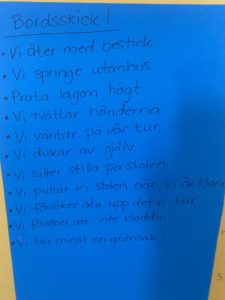 Bordsskick!
• Vi äter med bestick.
• Vi springe utomhus.
• Prata lagom högt
• Vi tvättar händerna
• Vi väntar på vår tur
• Vi dukar av själv
• Vi sitter stilla på stolen
• Vi puttar in stolen när vi är klara
• Vi försöker äta upp det vi tar
• Vi försöker att inte kladda.
• Vi tar minst en grönsak.